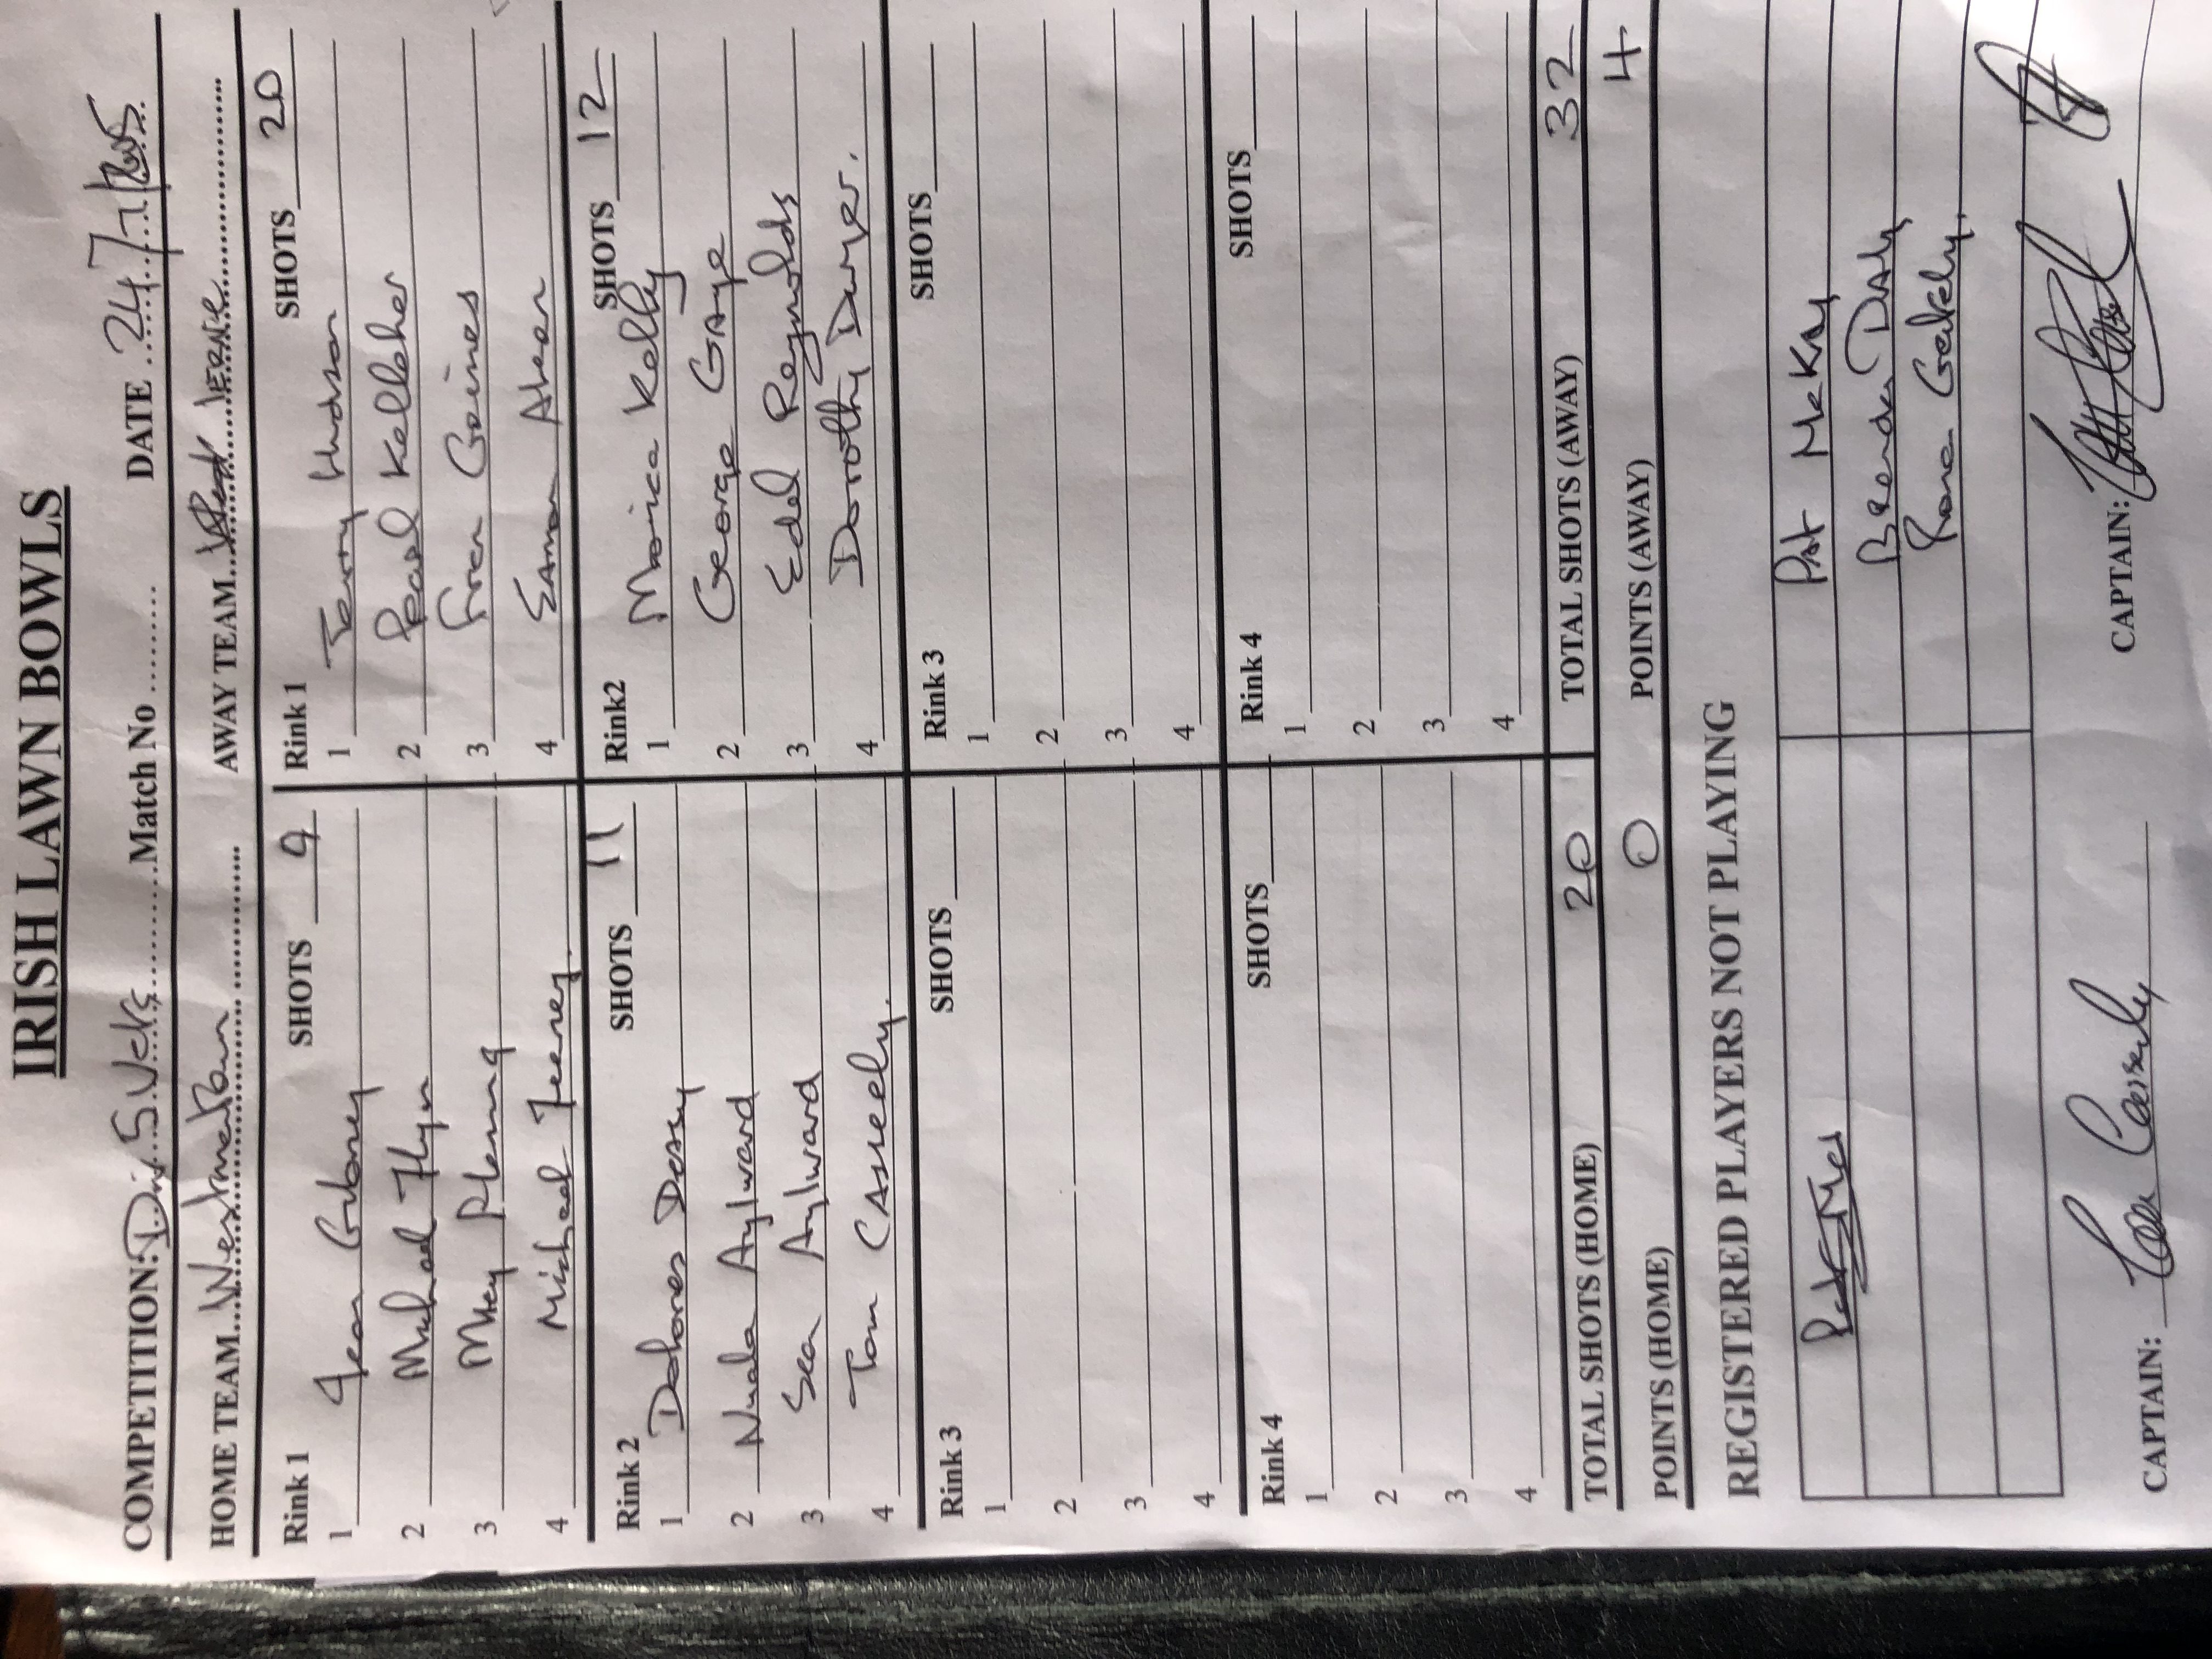 IRISH LAWN BOWLS
COMPETITION: Div 5 Veks Match No DATE 24/7/2025
HOME TEAM Westmanstown AWAY TEAM IERNE
Rink 1 SHOTS 9 Rink 1 SHOTS 20
1 Jean Gibney 1 Terry Hudson
2 Michael Flynn 2 Pearl Kelleher
3 Fleming 3 Fran Gaines
4 Michael Feeney. 4 Eamon Ahern
Rink 2 SHOTS 11 Rink2 SHOTS 12
1 Dolores Deasy 1 Monica Kelly
2 Nuala Aylward 2 George GAYE
3 Sean Aylward 3 Edel Reynolds
4 Tom CAsserly. 4 Dorothy
Rink 3 SHOTS Rink 3 SHOTS
1 1
2 2
3 3
4 4
Rink 4 SHOTS Rink 4 SHOTS
1 1
2 2
3 3
4 4
TOTAL SHOTS (HOME) 20 TOTAL SHOTS (AWAY) 32
POINTS (HOME) 0 POINTS (AWAY) 4
REGISTERED PLAYERS NOT PLAYING
Pat McKAy
Brendan DAly
CAPTAIN: Tom Casserly CAPTAIN: